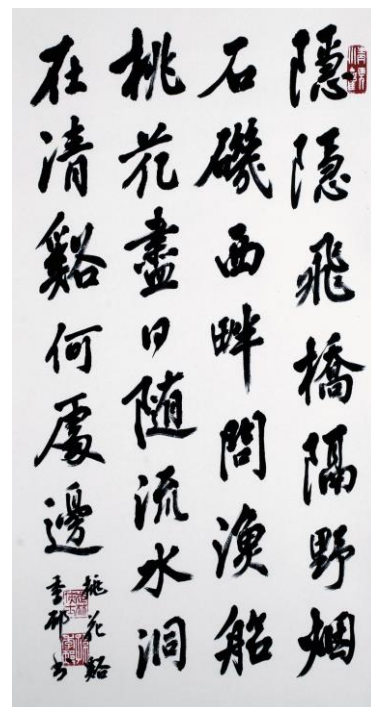 隱隱飛橋隔野烟
石磯西畔問漁船
桃花盡日随流水洞
在清谿何處邊
桃花谿